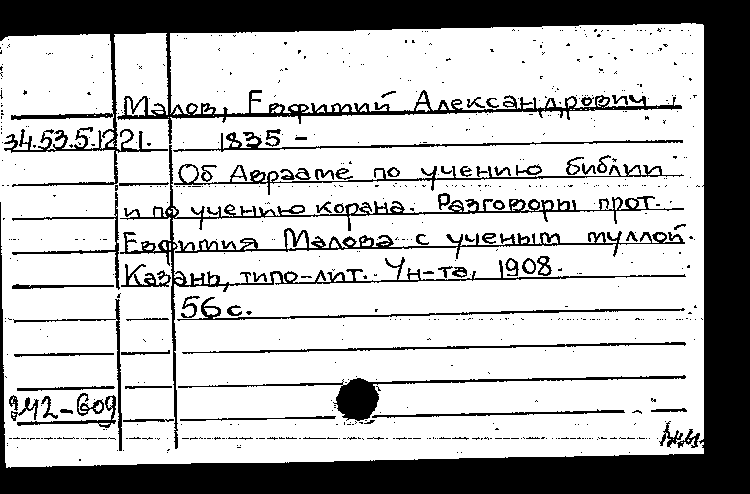 Малов, Евфимий Александрович,
34.53.5.1221. 1835 –
Об Аврааме по учению библии
и по учению корана. Разговоры прот.
Евфимия Малова с ученым муллой.
Казань, типо-лит. Ун-та, 1908.
56 с.